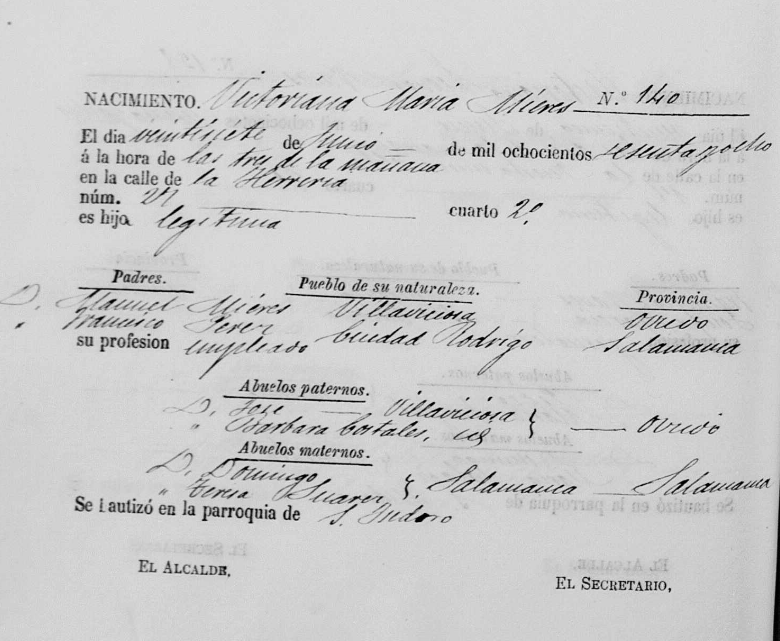 NACIMIENTO. Victoriana Maria Mieres N.º 140
El dia veintisiete de Junio de mil ochocientos sesenta y ocho
á la hora de las tres de la mañana
en la calle de la Herreria
núm. 27 cuarto 2º
es hija legitima
Padres. Pueblo de su naturaleza. Provincia.
D. Manuel Mieres Villaviciosa Oviedo
" Francisca Perez Ciudad Rodrigo Salamanca
su profesion empleado
Abuelos paternos.
D. Jose Villaviciosa } Oviedo
" Barbara Cortales, id
Abuelos maternos.
D. Domingo
" Teresa Suarez } Salamanca Salamanca
Se bautizó en la parroquia de S. Isidoro
EL ALCALDE,
EL SECRETARIO,